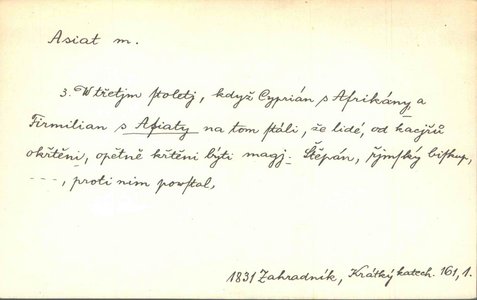 Asiat m.
3. W třetjm ſtoletj, když Cyprián s Afrikány a
Firmilian s Aſiaty na tom ſtáli, že lidé, od kacjřů
okřtěni, opětně křtěni býti magj. Štěpán, řjmſký biſkup,
---, proti nim powſtal,
1831 Zahradník, Krátký katech. 161, 1.